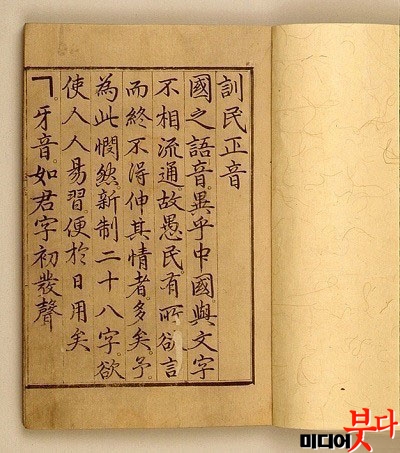 訓民正音
國之語音。異乎中國與文字
不相流通故愚民。有所欲言
而終不得伸其情者。多矣。予。
為此憫然新制二十八字。欲
使人人易習。便於日用矣
ㄱ。牙音。如君字初發聲
미디어붓다